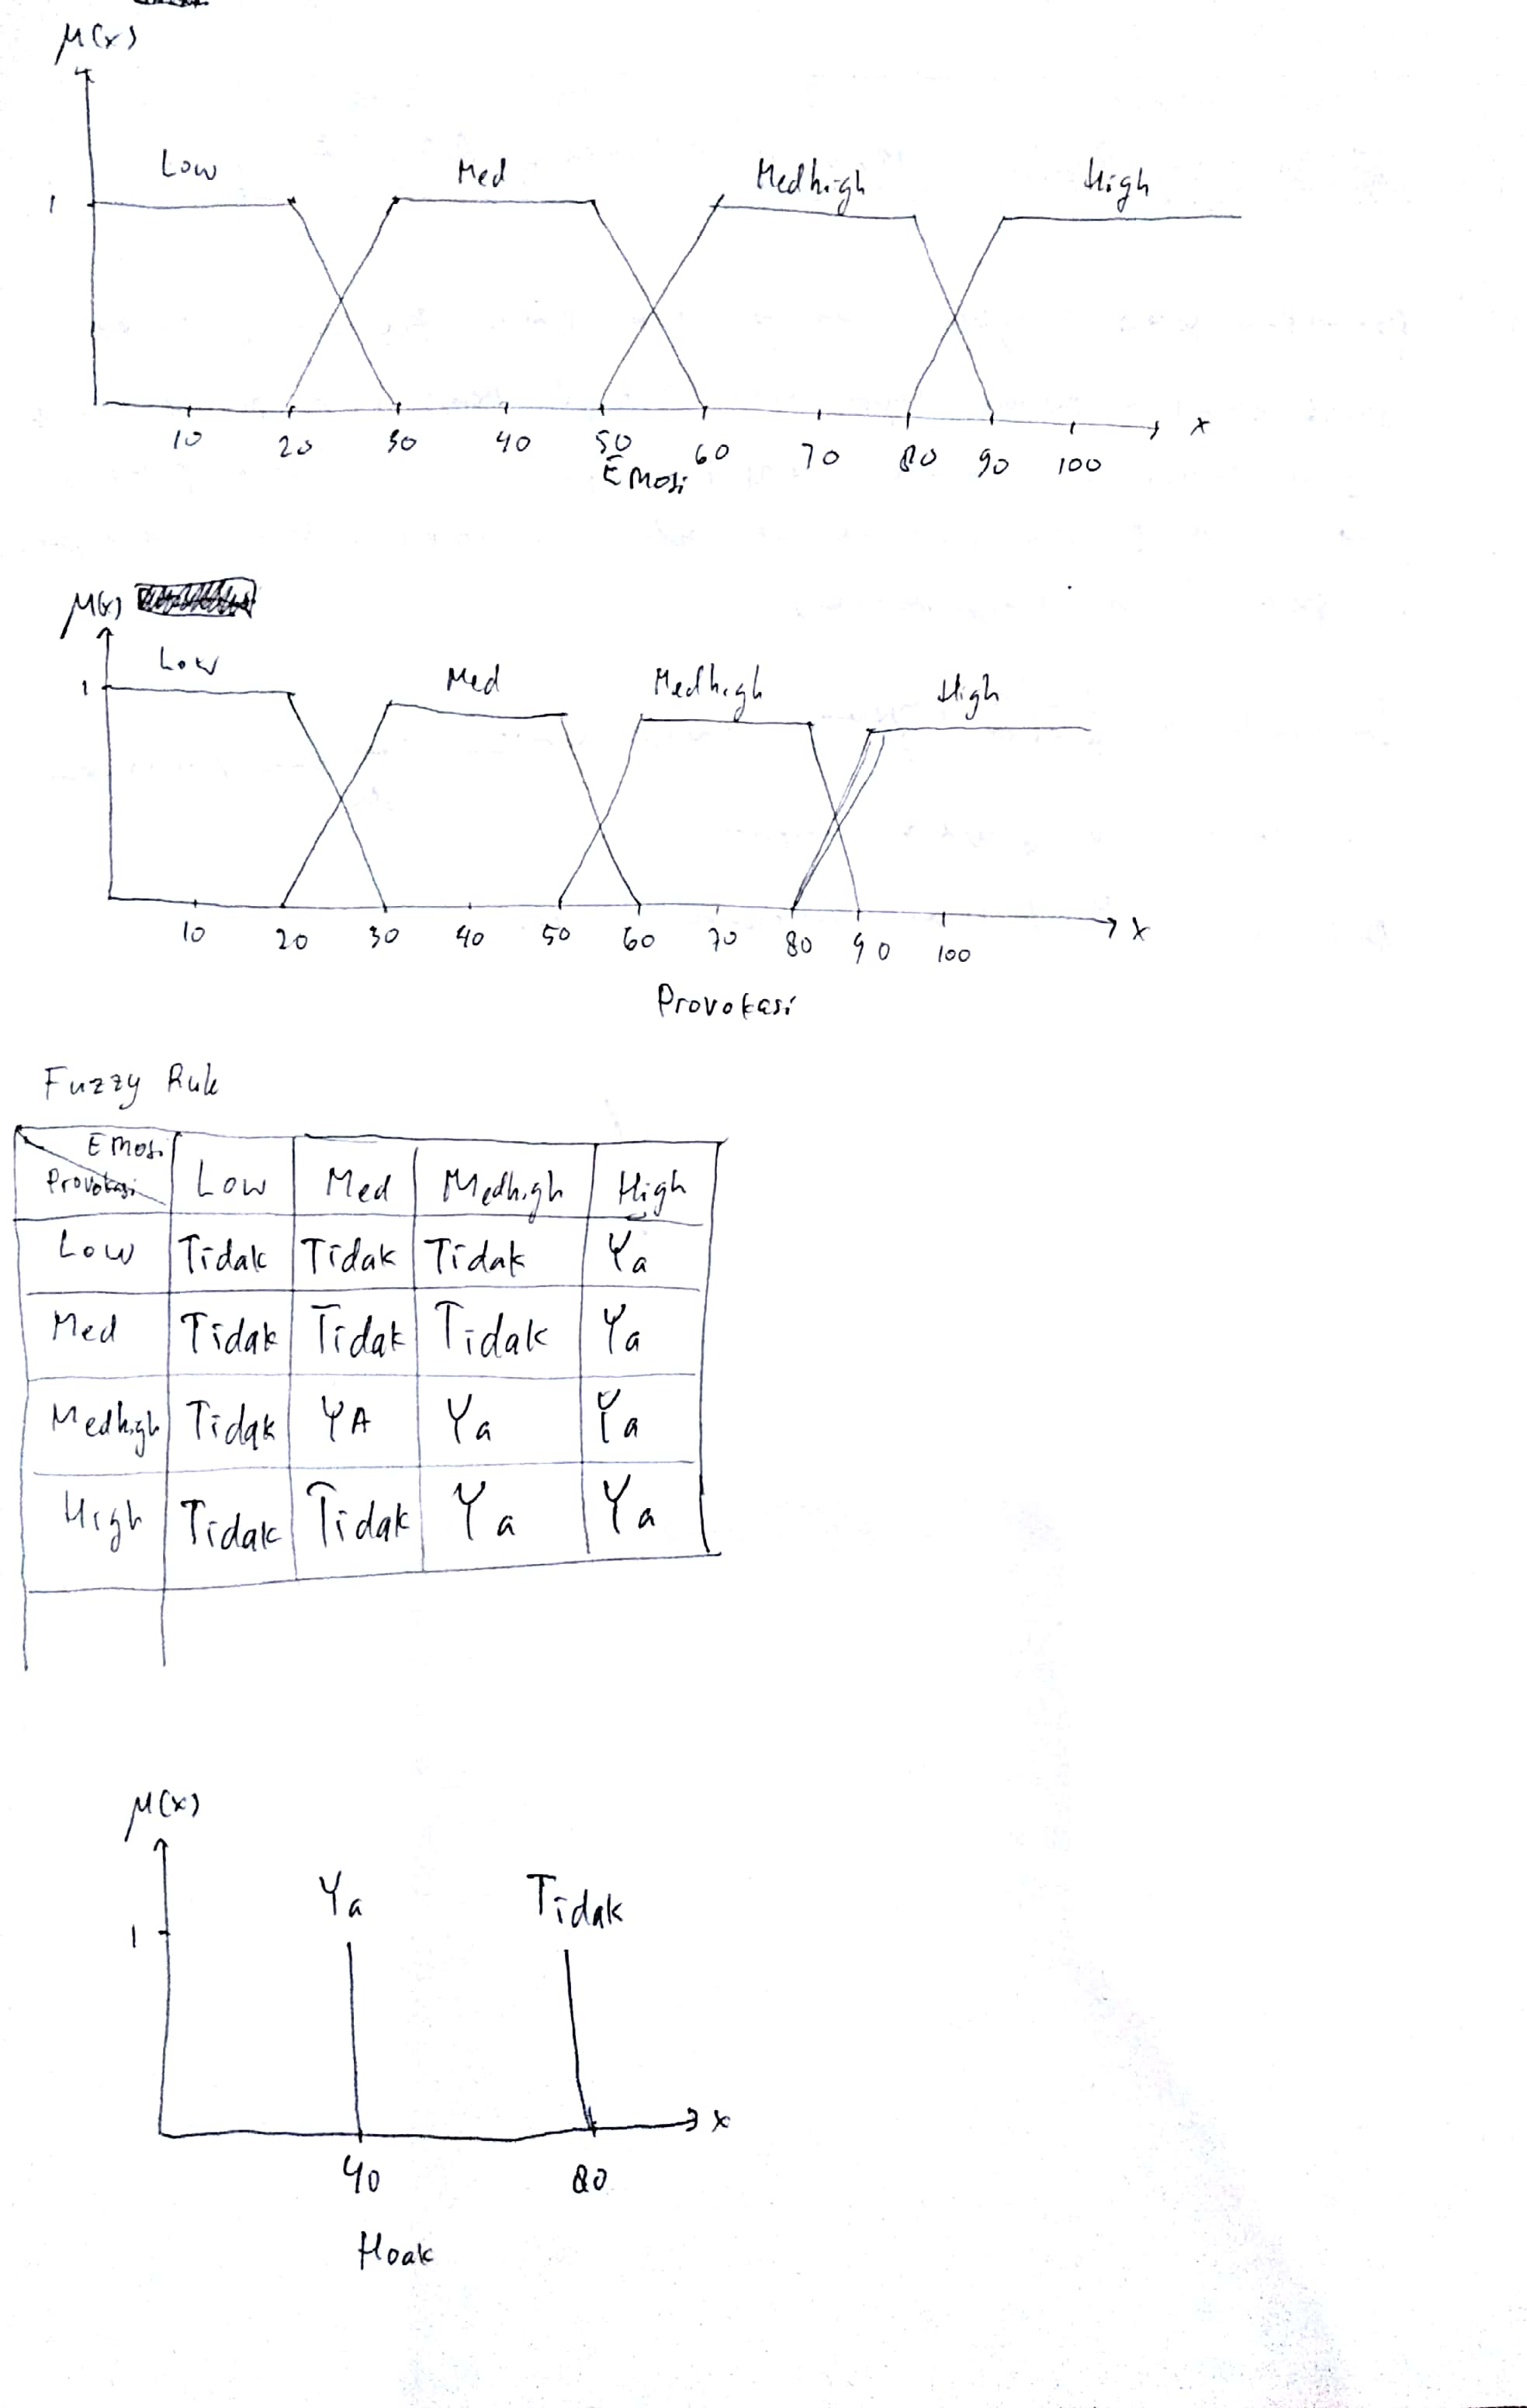 μ(x)
Low Med Medhigh High
1
10 20 30 40 50 60 70 80 90 100 x
Emosi
μ(x)
Low Med Medhigh High
1
10 20 30 40 50 60 70 80 90 100 x
Provokasi
Fuzzy Rule
Emosi
Provokasi Low Med Medhigh High
Low Tidak Tidak Tidak Ya
Med Tidak Tidak Tidak Ya
Medhigh Tidak YA Ya Ya
High Tidak Tidak Ya Ya
μ(x)
Ya Tidak
1
x
40 80
Hoak